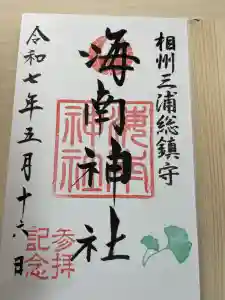 相州三浦総鎮守
海南神社
海南神社
令和七年五月十六日
参拝
記念